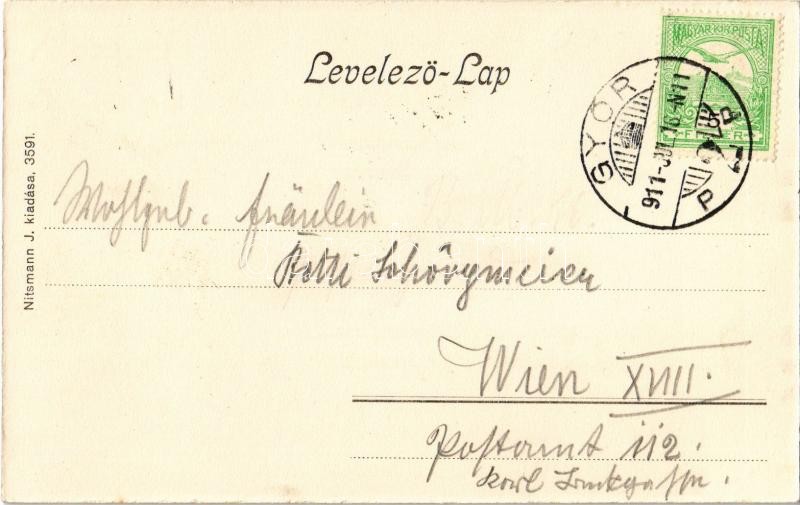 MAGYAR KIR. POSTA
FILLÉR
Levelező-Lap
GYŐR
911 JUL 16 N11
P
Nitsmann J. kiadása, 3591.
Wohlgeb. Fräulein
Wien XVIII.
Postamt 112.
Karl